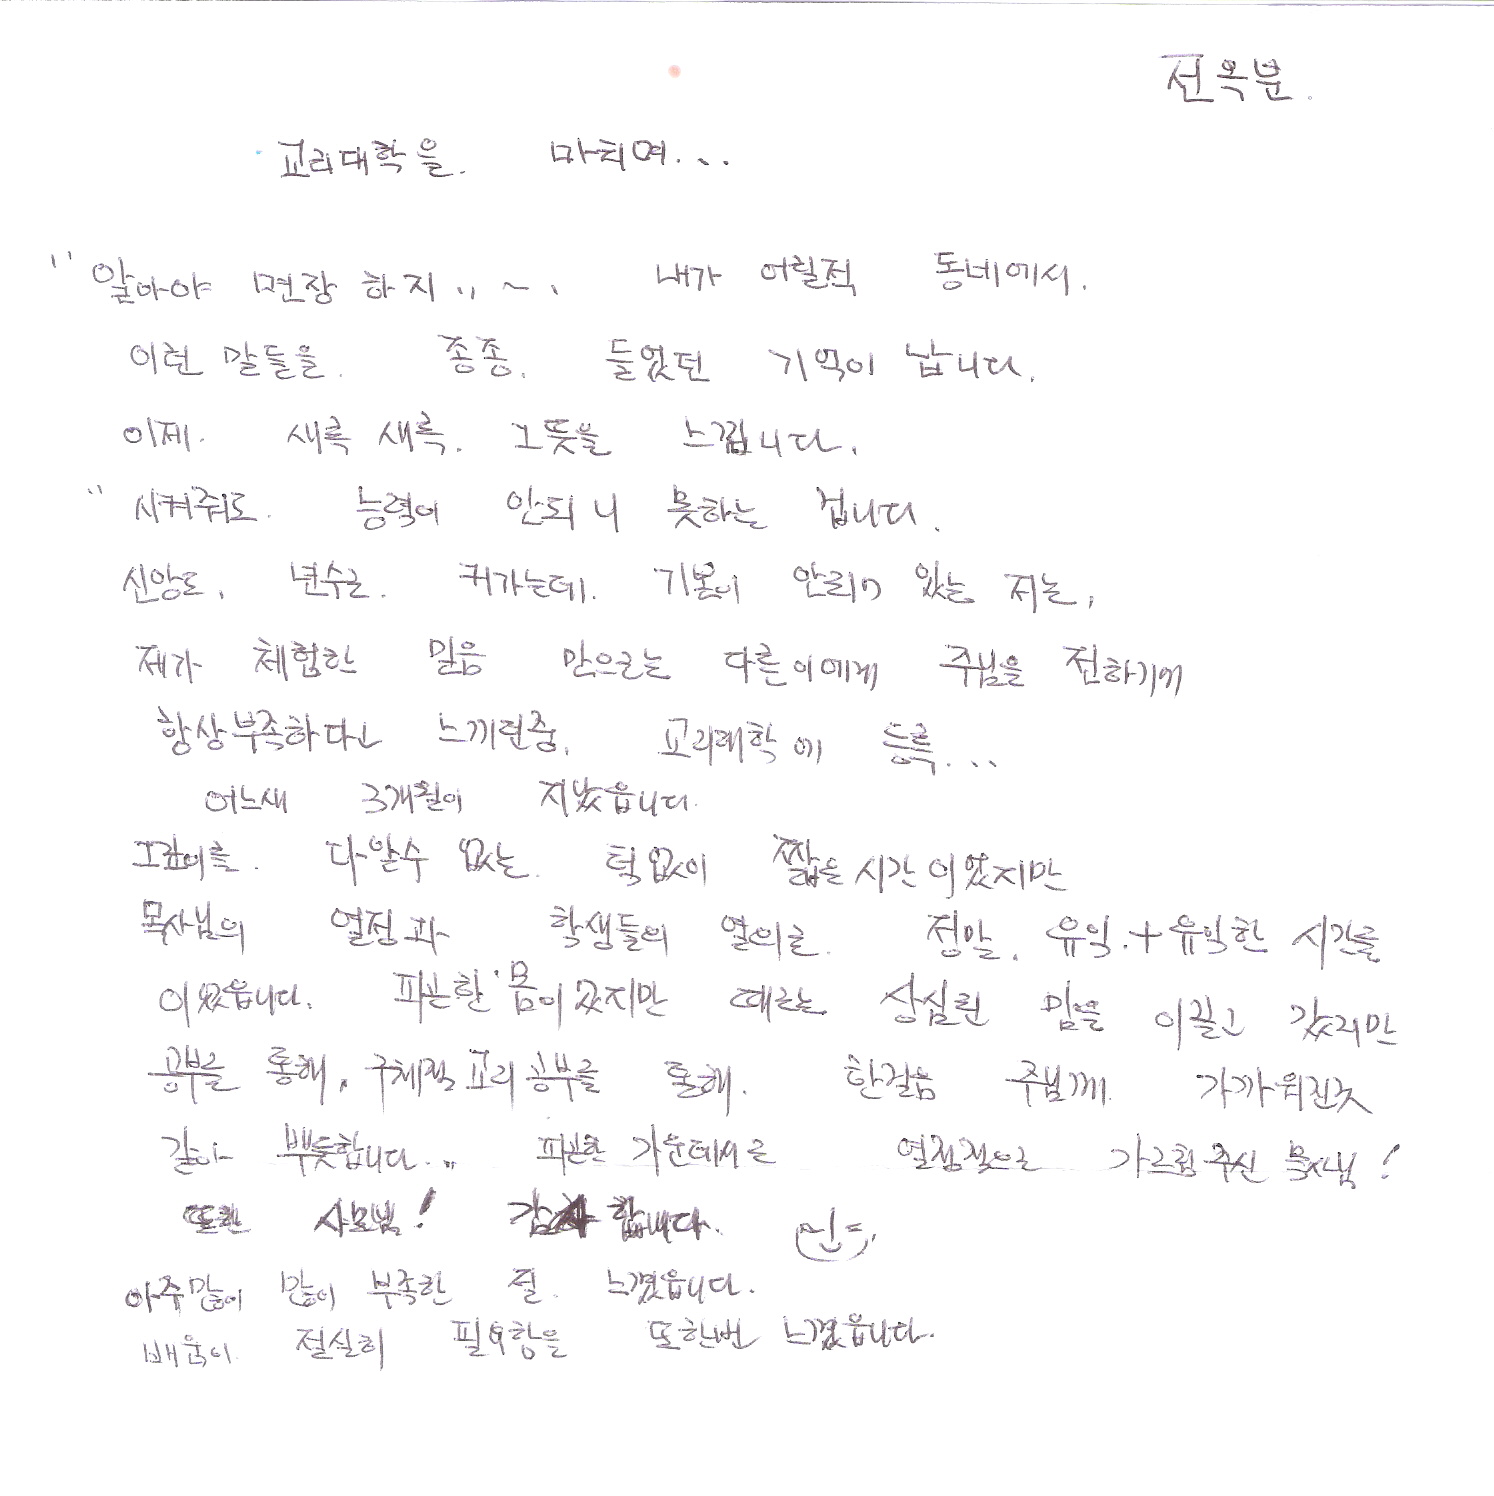 전옥분.
교리대학을. 마치며...
"알아야 면장 하지..~. 내가 어릴적 동네에서.
이런 말들을. 종종. 들었던 기억이 납니다.
이제. 새록 새록. 그뜻을 느낍니다.
"시켜줘도. 능력이 안되니 못하는 겁니다.
신앙도. 년수는. 커가는데. 기본이 안되어 있는 저는,
제가 체험한 믿음 만으로는 다른이에게 주님을 전하기에
항상부족하다고 느끼던중. 교리대학에 등록...
어느새 3개월이 지났읍니다.
그깊이를. 다알수 없는. 턱없이 짧은시간이었지만
목사님의 열정과 학생들의 열의로. 정말. 유익.+유익한 시간들
이었읍니다. 피곤한 몸이었지만 때로는 맘을 이끌고 갔지만
공부를 통해. 구체적교리공부를 통해. 한걸음 주님께. 가까워진것
같아 뿌듯합니다... 피곤한 가운데서도 열정적으로 가르쳐주신 목사님!
또한 사모님! 감사합니다.
아주많이 많이 부족한 절. 느꼈읍니다.
배움이. 절실히 필요함을 또한번 느꼈읍니다.